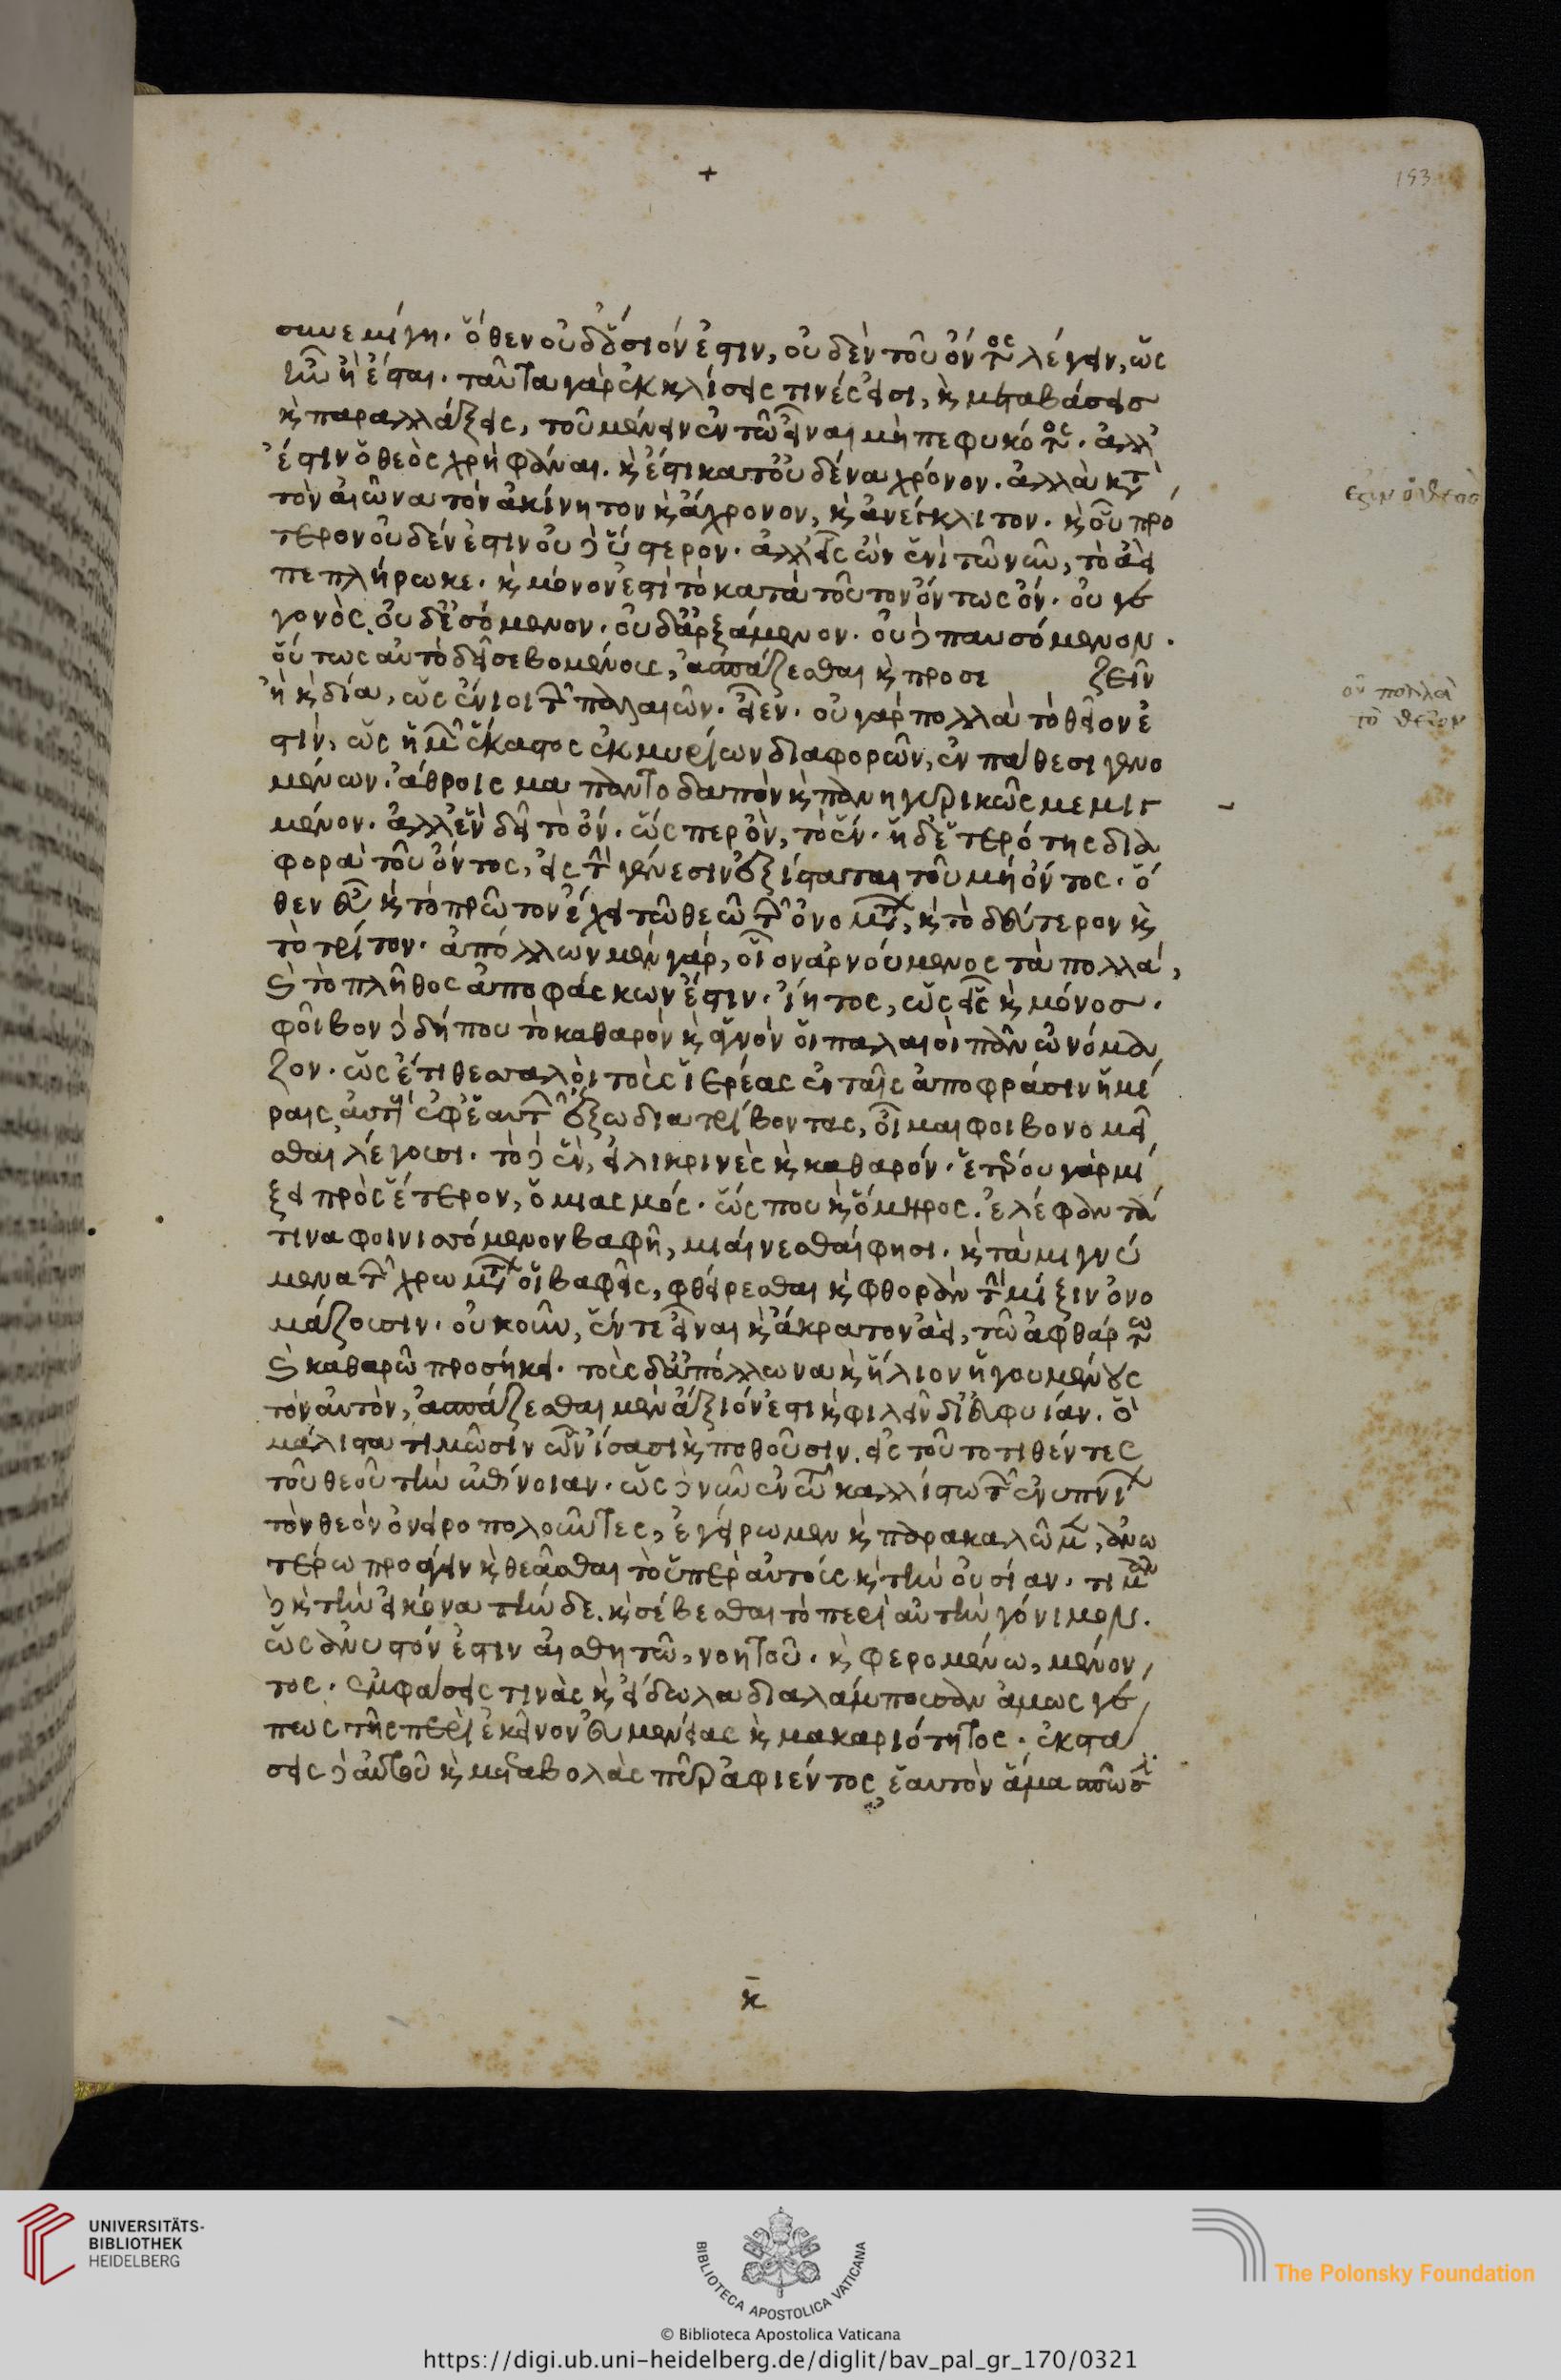 +
193
συνεμίγη. ὅθεν οὐδ' ὅσιόν ἐστιν, οὐδὲν τοῦ ὄντος λέγειν, ὡς
ἦν ἢ ἔσται. ταῦτα γὰρ ἐκκλίσεις τινές εἰσι, καὶ μεταβάσεις
καὶ παραλλάξεις, τοῦ μένειν ἐν τῶ εἶναι μὴ πεφυκότος. ἀλλ'
ἔστιν ὁ θεὸς χρὴ φάναι. καὶ ἔστι κατ' οὐδένα χρόνον. ἀλλὰ κατὰ
τὸν αἰῶνα τὸν ἀκίνητον καὶ ἄχρονον, καὶ ἀνέγκλιτον. καὶ οὗ πρό
τερον οὐδέν ἐστιν οὐδ' ὕστερον. ἀλλ' εἷς ὢν ἑνὶ τῶ νῦν, τὸ ἀεὶ
πεπλήρωκε. καὶ μόνον ἐστὶ τὸ κατὰ τοῦτον ὄντως ὄν. οὐ γε
γονὸς οὐδ' ἐσόμενον. οὐδ' ἀρξάμενον. οὐδὲ παυσόμενον.
οὕτως αὐτὸ δεῖ σεβομένους, ἀσπάζεσθαι καὶ προσε ζειν
ἢ καὶ δία, ὡς ἔνιοι τῶν παλαιῶν. εἶ ἕν. οὐ γὰρ πολλὰ τὸ θεῖον ἐ
στιν, ὡς ἡμῶν ἕκαστος ἐκ μυρίων διαφορῶν, ἐν πάθεσι γενο
μένων. ἄθροισμα παντοδαπὸν καὶ πανηγυρικῶς μεμιγ
μένον. ἀλλ' ἓν δεῖ τὸ ὄν. ὥσπερ ὂν, τὸ ἕν. ἡ δ' ἑτερότης δια
φορᾶ τοῦ ὄντος, εἰς τὴν γένεσιν ἐξίσταται τοῦ μὴ ὄντος. ὅ
θεν εὖ καὶ τὸ πρῶτον ἔχει τῶ θεῶ τῶν ὀνομάτων, καὶ τὸ δεύτερον καὶ
τὸ τρίτον. ἀπόλλων μὲν γάρ, οἷον ἀρνούμενος τὰ πολλά,
καὶ τὸ πλῆθος ἀποφάσκων ἐστιν. ἰήιος, ὡς εἷς καὶ μόνος.
φοῖβον δὲ δήπου τὸ καθαρὸν καὶ ἁγνὸν οἱ παλαιοὶ πᾶν ὠνόμα
ζον. ὡς ἔτι θεσσαλοὶ τοὺς ἱερέας ἐν ταῖς ἀποφράσιν ἡμέ
ραις αὐτοὺς ἐφ' ἑαυτῶν ἔξω διατρίβοντας, οἶμαι φοιβονομεῖ
σθαι λέγουσι. τὸ δὲ ἓν, εἰλικρινὲς καὶ καθαρόν. ἑτέρου γὰρ μί
ξει πρὸς ἕτερον, ὁ μιασμός. ὥς που καὶ ὅμηρος. ἐλέφαντά
τινα φοινισσόμενον βαφῆ, μιαίνεσθαί φησι. καὶ τὰ μιγνύ
μενα τῶν χρωμάτων οἱ βαφεῖς, φθείρεσθαι καὶ φθορὰν τὴν μίξιν ὀνο
μάζουσιν. οὐκοῦν, ἕν τε εἶναι καὶ ἄκρατον ἀεὶ, τῶ ἀφθάρτω
καὶ καθαρῶ προσήκει. τοὺς δ' ἀπόλλωνα καὶ ἥλιον ἡγουμένους
τὸν αὐτὸν, ἀσπάζεσθαι μὲν ἄξιόν ἐστι καὶ φιλεῖν δι' εὐφυίαν. ὃ
μάλιστα τιμῶσιν ὧν ἴσασι καὶ ποθοῦσιν. εἰς τοῦτο τιθέντες
τοῦ θεοῦ τὴν ἐπίνοιαν. ὡς δὲ νῦν ἐν τῶ καλλίστω τῶν ἐνυπνίων
τὸν θεὸν ὀνειροπολοῦντες, ἐγείρωμεν καὶ παρακαλῶμεν, ἀνω
τέρω προσιέναι καὶ θεᾶσθαι τὸ ὕπερ αὐτοὺς καὶ τὴν οὐσίαν. τιμᾶν
δὲ καὶ τὴν εἰκόνα τήνδε. καὶ σέβεσθαι τὸ περὶ αὐτὴν γόνιμον.
ὡς ἀνυστόν ἐστιν αἰσθητῶ, νοητοῦ. καὶ φερομένω, μένον
τος. ἐμφάσεις τινὰς καὶ εἴδωλα διαλάμπουσαν ἁμως γέ
πως τῆς περὶ ἐκεῖνον εὐμενείας καὶ μακαριότητος. ἐκστά
σεις δὲ αὐτοῦ καὶ μεταβολὰς πῦρ ἀφιέντος ἑαυτὸν ἅμα σπῶσιν
ἔστιν ὁ θεὸς
οὐ πολλὰ
τὸ θεῖον
κ̅
UNIVERSITÄTS-
BIBLIOTHEK
HEIDELBERG
BIBLIOTECA APOSTOLICA VATICANA
The Polonsky Foundation
© Biblioteca Apostolica Vaticana
https://digi.ub.uni-heidelberg.de/diglit/bav_pal_gr_170/0321